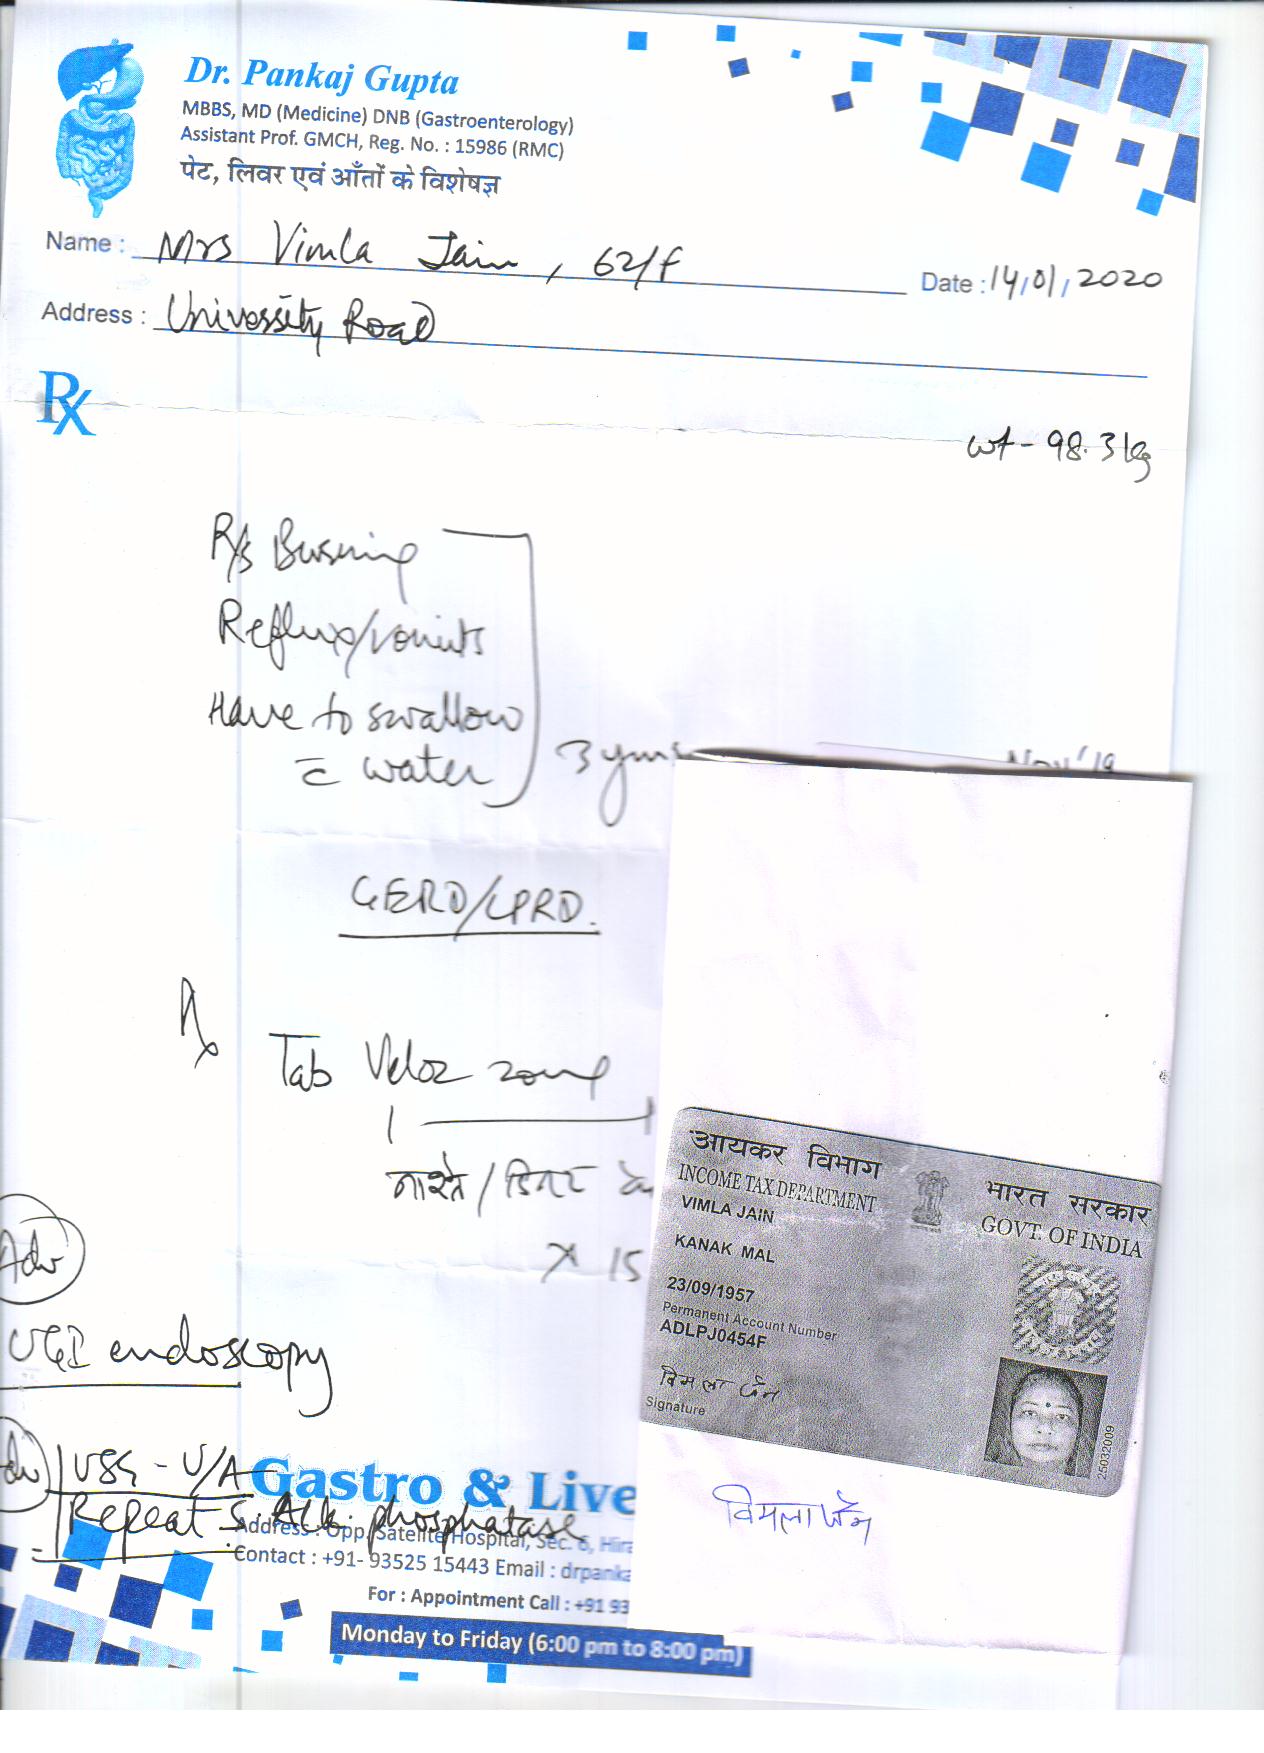 Dr. Pankaj Gupta
MBBS, MD (Medicine) DNB (Gastroenterology)
Assistant Prof. GMCH, Reg. No. : 15986 (RMC)
पेट, लिवर एवं आँतों के विशेषज्ञ
Name : Mrs Vimla Jain, 62/f
Date : 14/01/2020
Address : University Road
Rx
wt - 98.3 kg
R/s Burning
Reflux/vomits
Have to swallow
c̄ water
3 yrs
Nov '19
GERD/LPRD.
Rx
Tab Veloz
1 — 1
नाश्ते / डिनर के
x 15
Adv
UGI endoscopy
Adv
USG - U/A
Repeat S. Alk. phosphatase
Gastro & Live
Address : Opp. Satelite Hospital, Sec. 6, Hira
Contact : +91- 93525 15443 Email : drpanka
For : Appointment Call : +91 93
Monday to Friday (6:00 pm to 8:00 pm)
आयकर विभाग
INCOME TAX DEPARTMENT
भारत सरकार
GOVT. OF INDIA
VIMLA JAIN
KANAK MAL
23/09/1957
Permanent Account Number
ADLPJ0454F
विमला जैन
Signature
25032009
विमला जैन